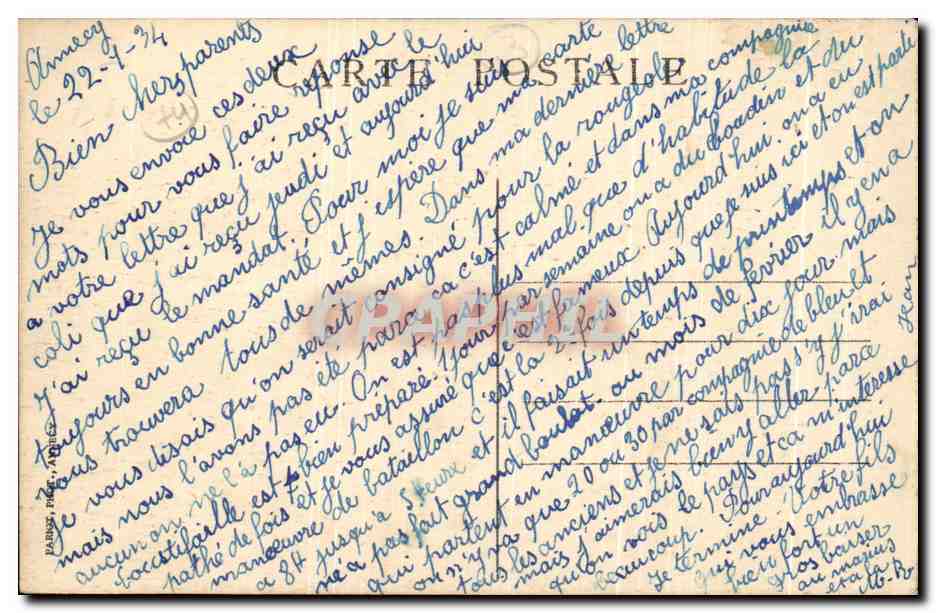 Annecy
le 22-1-34
Bien chers parents
Je vous envoie ces deux
mots pour vous faire réponse
a votre lettre que j'ai reçu avec le
coli que j'ai reçu jeudi et aujourd'hui
j'ai reçu le mandat. Pour moi je suis
toujours en bonne santé et j'espère que ma carte
vous trouvera tous de mêmes. Dans ma dernier lettre
je vous disais qu'on serait consigné pour la rougeole
mais nous l'avons pas été paraca c'est calmé et dans ma compagnie
aucun on ne l'a pas eu. On est pas plus mal que d'habitude la
est bien préparé. 1 jour par semaine on a du boudin et du
pathé de fois et je vous assure que c'est fameux. Aujourd'hui on a eu
manœuvre de bataillon c'est la 2 fois depuis que je suis ici et on est parti
a 8H jusqu'à 5 heure et il faisait un temps de printemps et on
n'é a pas fait grand boulot. au mois de février il y en a
qui partent en manœuvre pour dix jour mais
on n'y va que 20 ou 30 par compagnie de bleu et
tous les anciens et je ne sais pas s'y j'irai
mais j'aimerais bien y aller para
qu'on vois le pays et ca m'interesse
beaucoup. Pour aujourd'hui
je termine. Votre fils
qui vous embrasse
bien fort un
gros baiser
au
et a la M-R
Jean
CARTE POSTALE
PARIST, PHOT., ANNECY
CPAPHIL